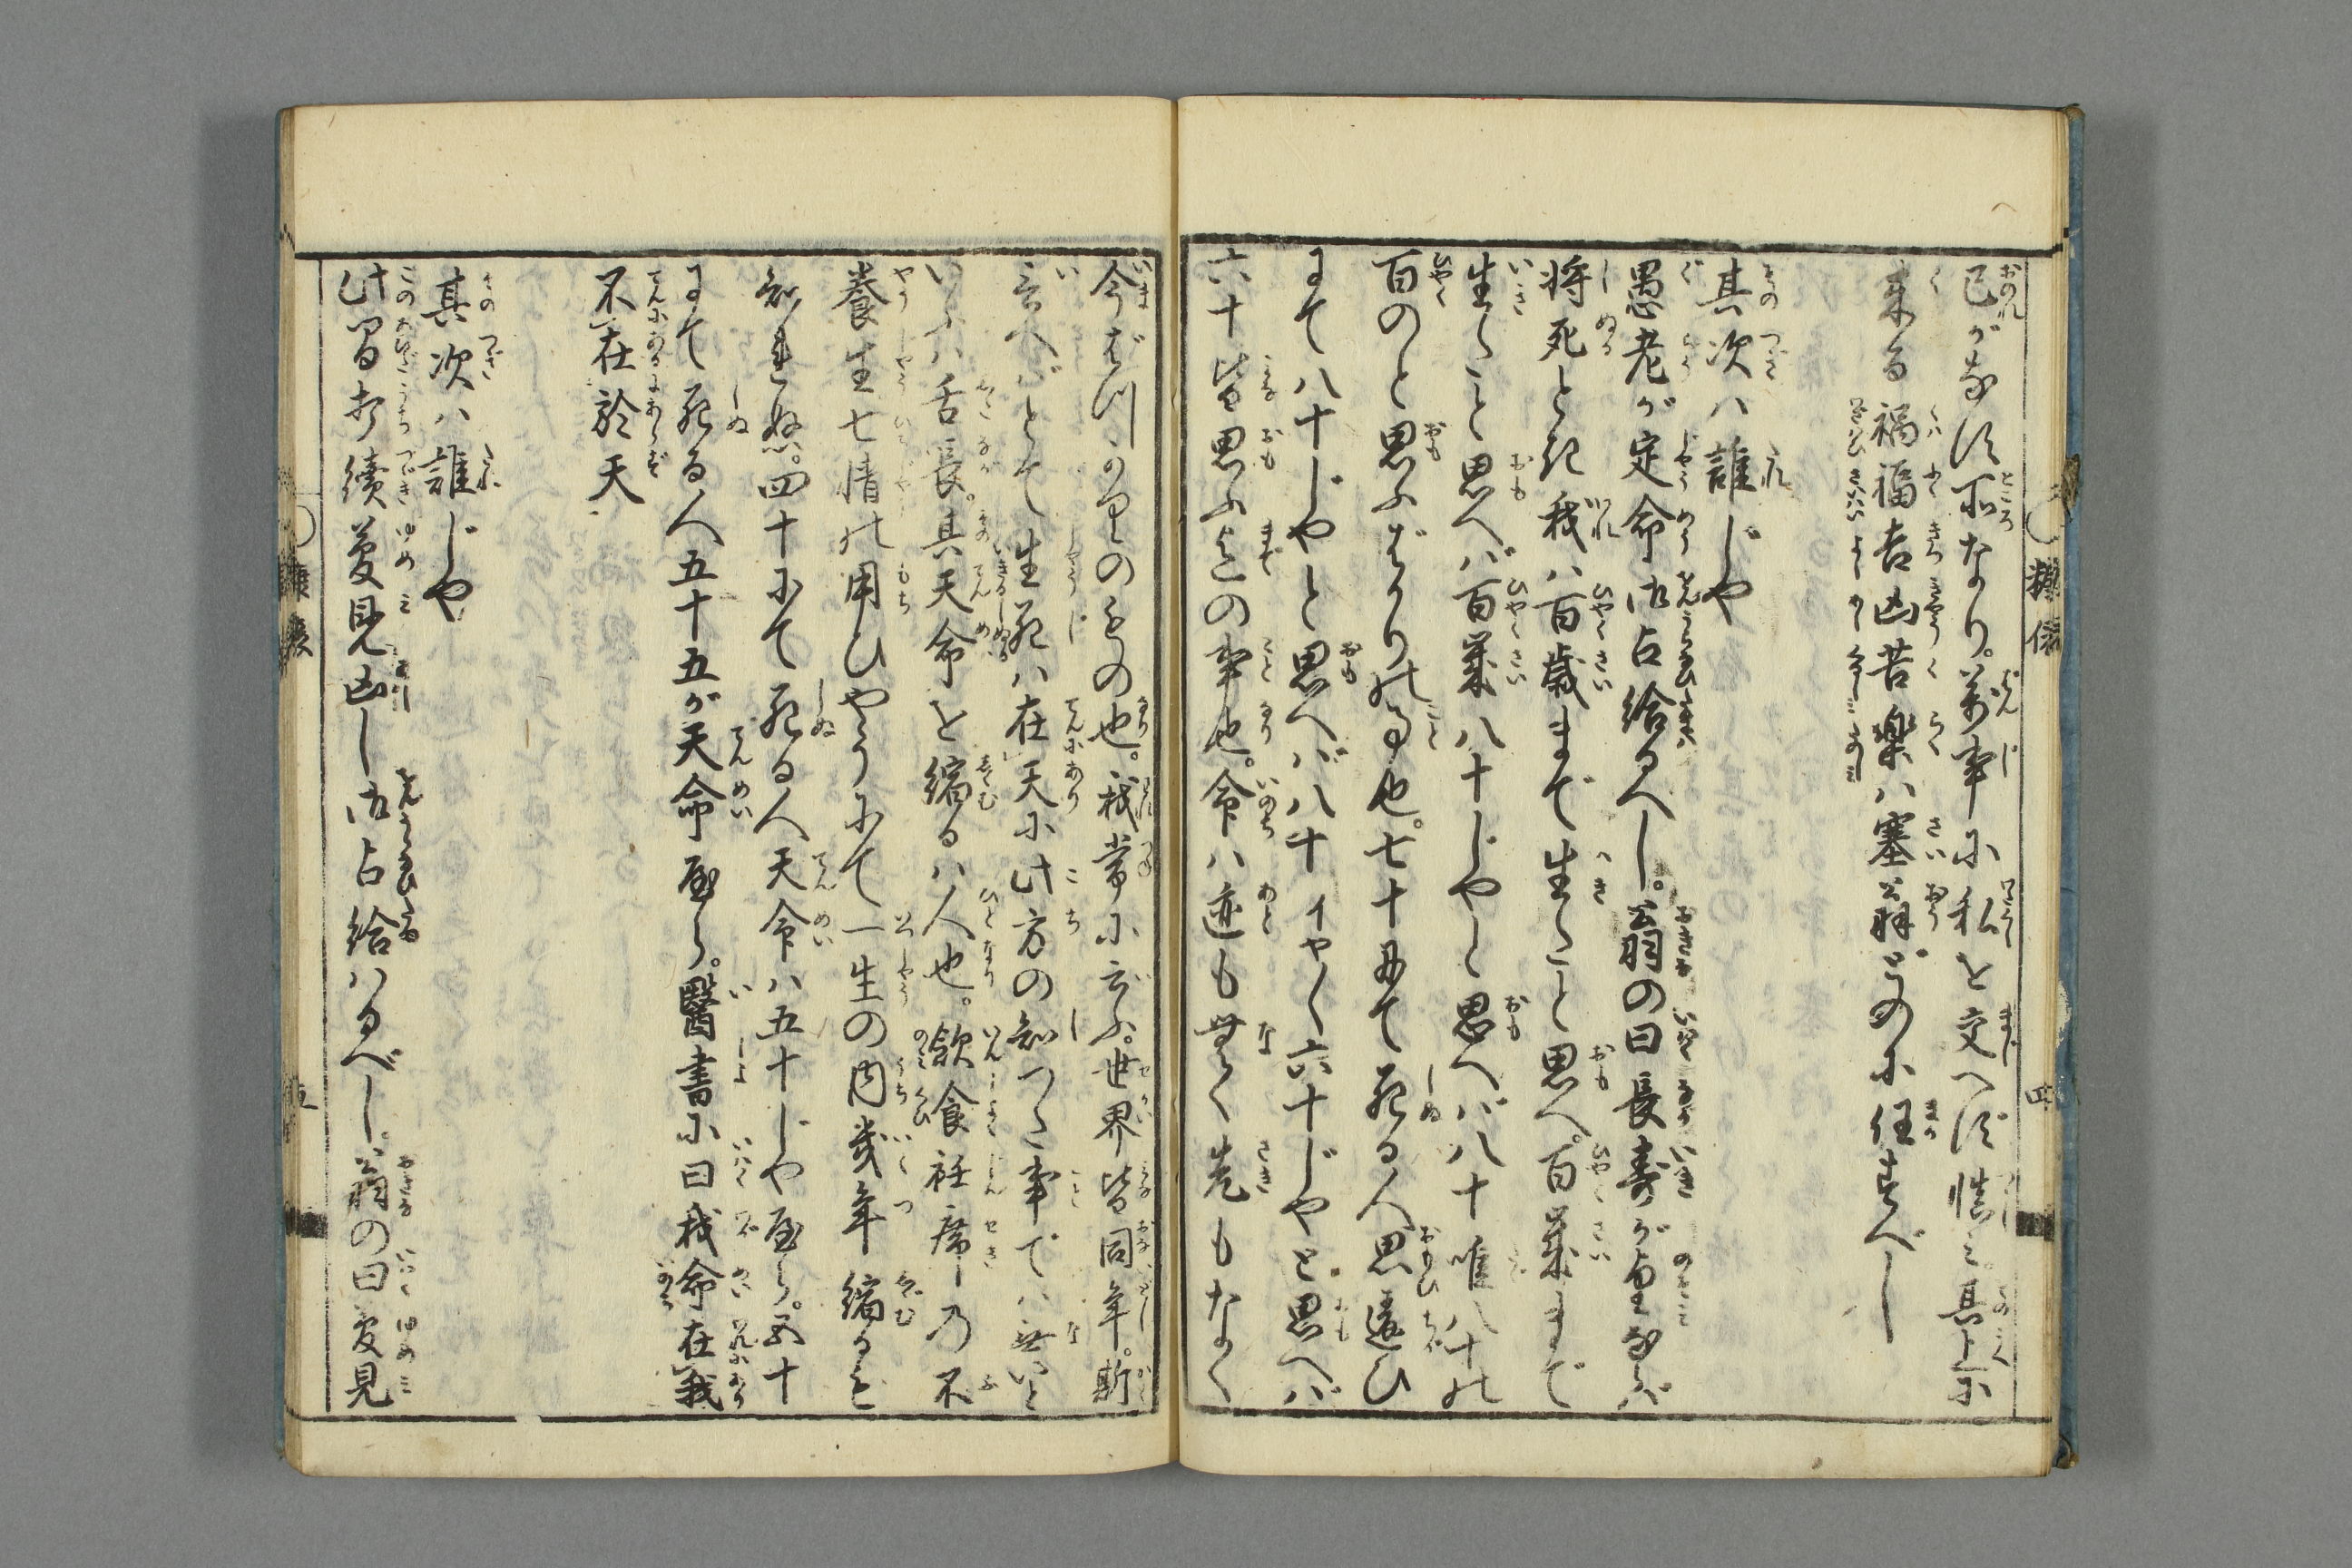 己がなす所なり。万事に私を交へず慎み。其上に
来る禍福吉凶苦楽ハ塞翁がごとくに任すべし
其次ハ誰じや
愚老が定命御占給るべし。翁の曰長寿が望ならバ
将死とき我ハ百歳まで生くと思へ。百歳まで
生くと思へバ百歳八十じや〱思へバ八十唯八十の
百のと思ふばかりの事也。七十にて死る人思違ひ
にて八十じやと思へバ八十イヤ〱六十じやと思へバ
六十皆思ふまでの事也。命ハ迹も無く先もなく
今ばかりのもの也。我常に云ふ。世界皆同年。斯
言へバとて生死ハ在天に此方の知つた事でハ無いと
いふハ舌長。其天命を縮るハ人也。飲食衽席の不
養生七情の用ひやうにて一生の内幾年縮るも
知れぬ。四十にて死る人天命ハ五十じややら。五十
にて死る人五十五が天命やら。醫書に曰我命在我
不在於天
其次ハ誰じや
此間打續夢見凶し御占給ハるべし。翁の曰夢見
四
五